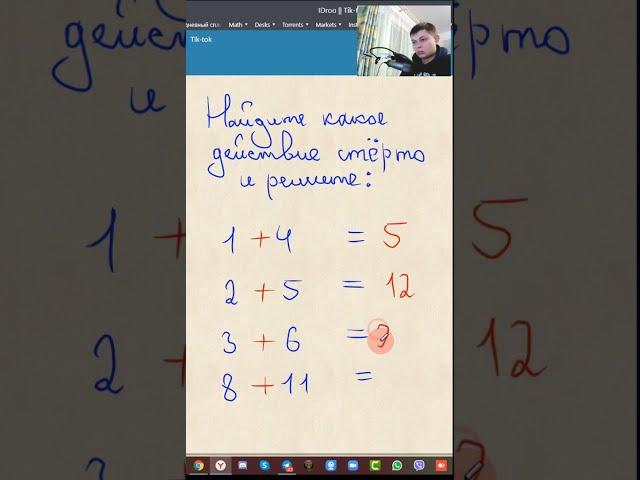 IDroo || Tik-
Math Desks Torrents Markets
Tik-tok
Найдите какое
действие стёрто
и решите:
1 + 4 = 5
2 + 5 = 12
3 + 6 =
8 + 11 =
1 +
5
2 +
12
3